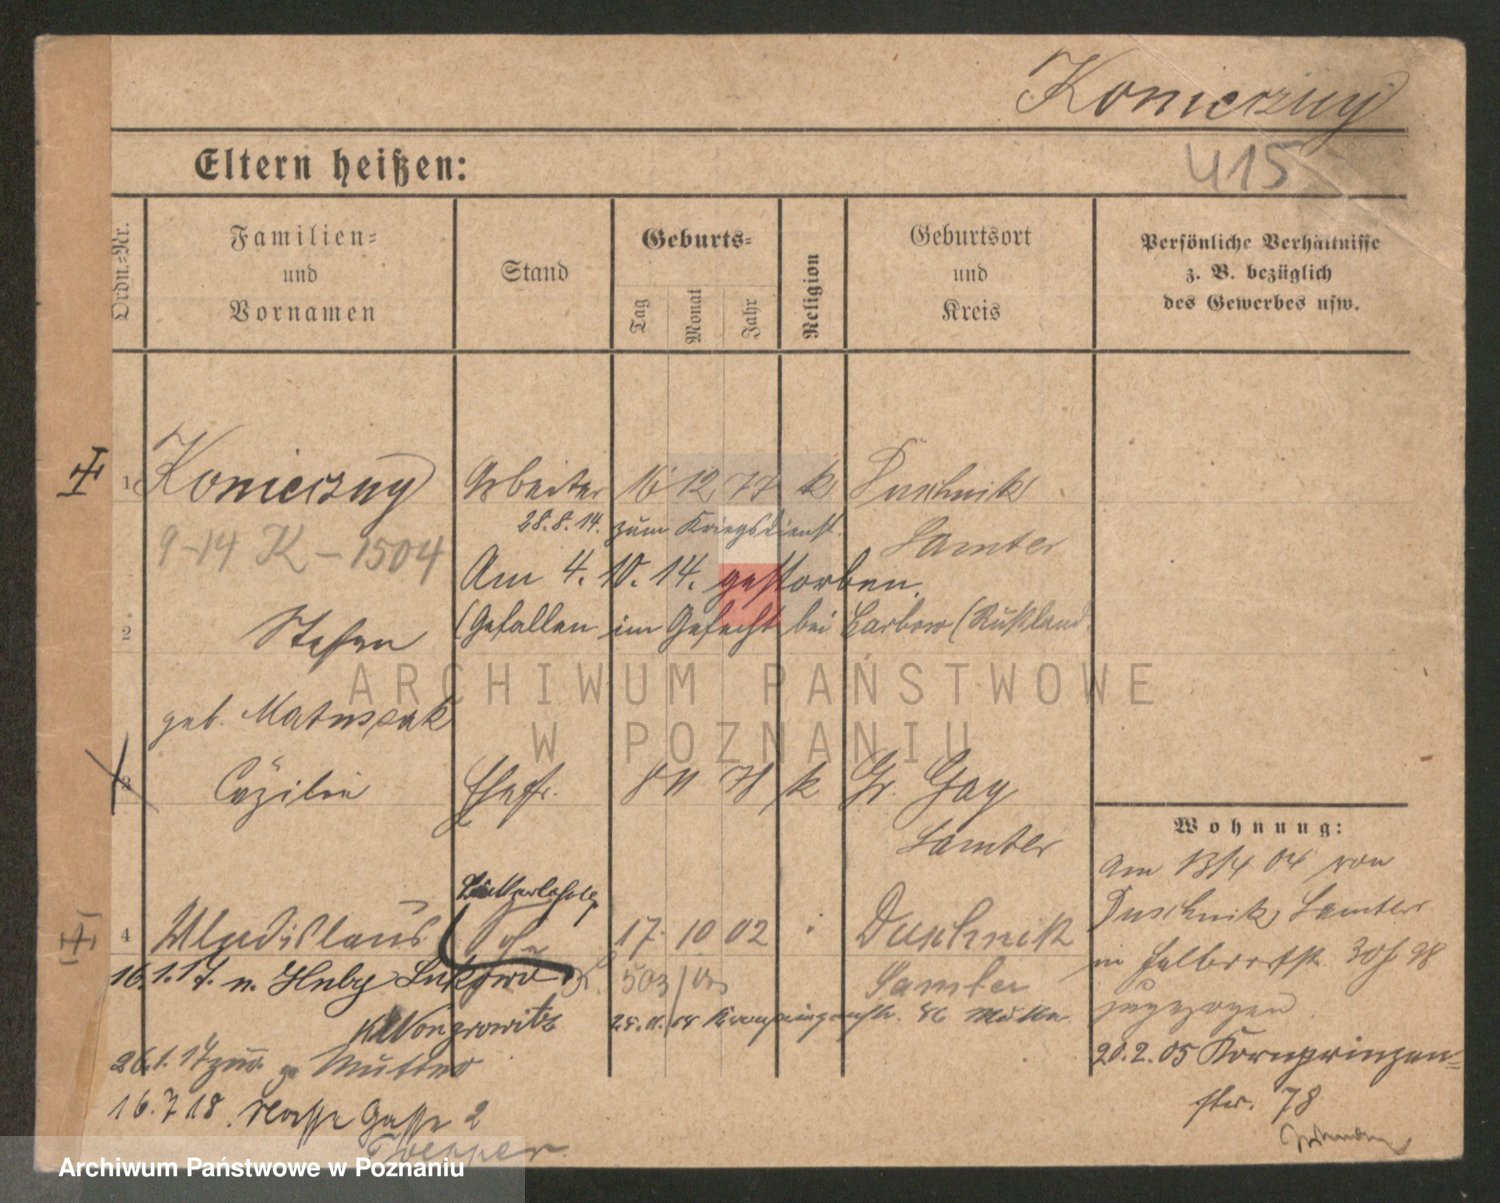 Konieczny
Eltern heißen:
415
Ordn.-Nr.
Familien-
und
Vornamen
Stand
Geburts-
Tag
Monat
Jahr
Religion
Geburtsort
und
Kreis
Persönliche Verhältnisse
z. B. bezüglich
des Gewerbes usw.
1 Konieczny Arbeiter 16 12 77 k Duschnik
28.8.14. zum Kriegsdienst.
Samter
9-14 K-1504
Am 4.10.14. gestorben.
2 Stefan
(Gefallen im Gefecht bei (Rußland
geb. Matuszak
3 Cäzilie Ehefr. 8 11 78 k Gr. Gay
Samter
4 Wladislaus Sohn 17. 10 02 Duschnik
Samter
16.1.17. n. Huby
Wongrowitz
26.1.17 zur. z. Mutter
16.7.18. Gasse 2
Wohnung:
Am 13/4 04 von
Duschnik, Samter
in
zugezogen
20.2.05 Kronprinzen-
str. 78
ARCHIWUM PAŃSTWOWE
W POZNANIU
Archiwum Państwowe w Poznaniu